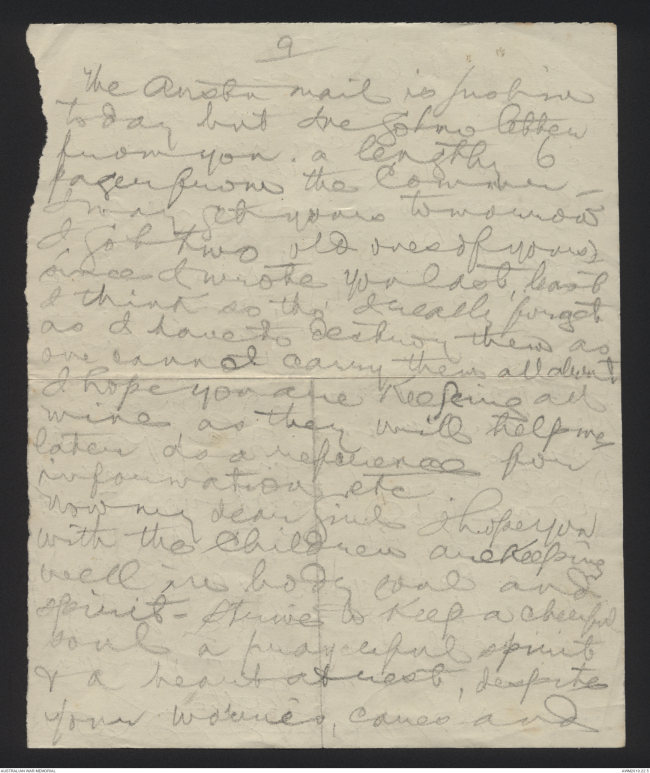 9
The Austn mail is just in
today but Ive got no letter
from you. a lengthy 6
pager from the Commer-
I may get yours tomorrow
I got two old ones of yours
since I wrote you last, least
I think so tho' I really forget
as I have to destroy them as
one cannot carry them all about
I hope you are keeping all
mine as they will help me
later as a reference for
information etc
Now my dear girl I hope you
with the children are keeping
well in body soul and
spirit - Strive to keep a cheerful
soul a prayerful spirit
& a heart at rest, despite
your worries, cares and
AUSTRALIAN WAR MEMORIAL